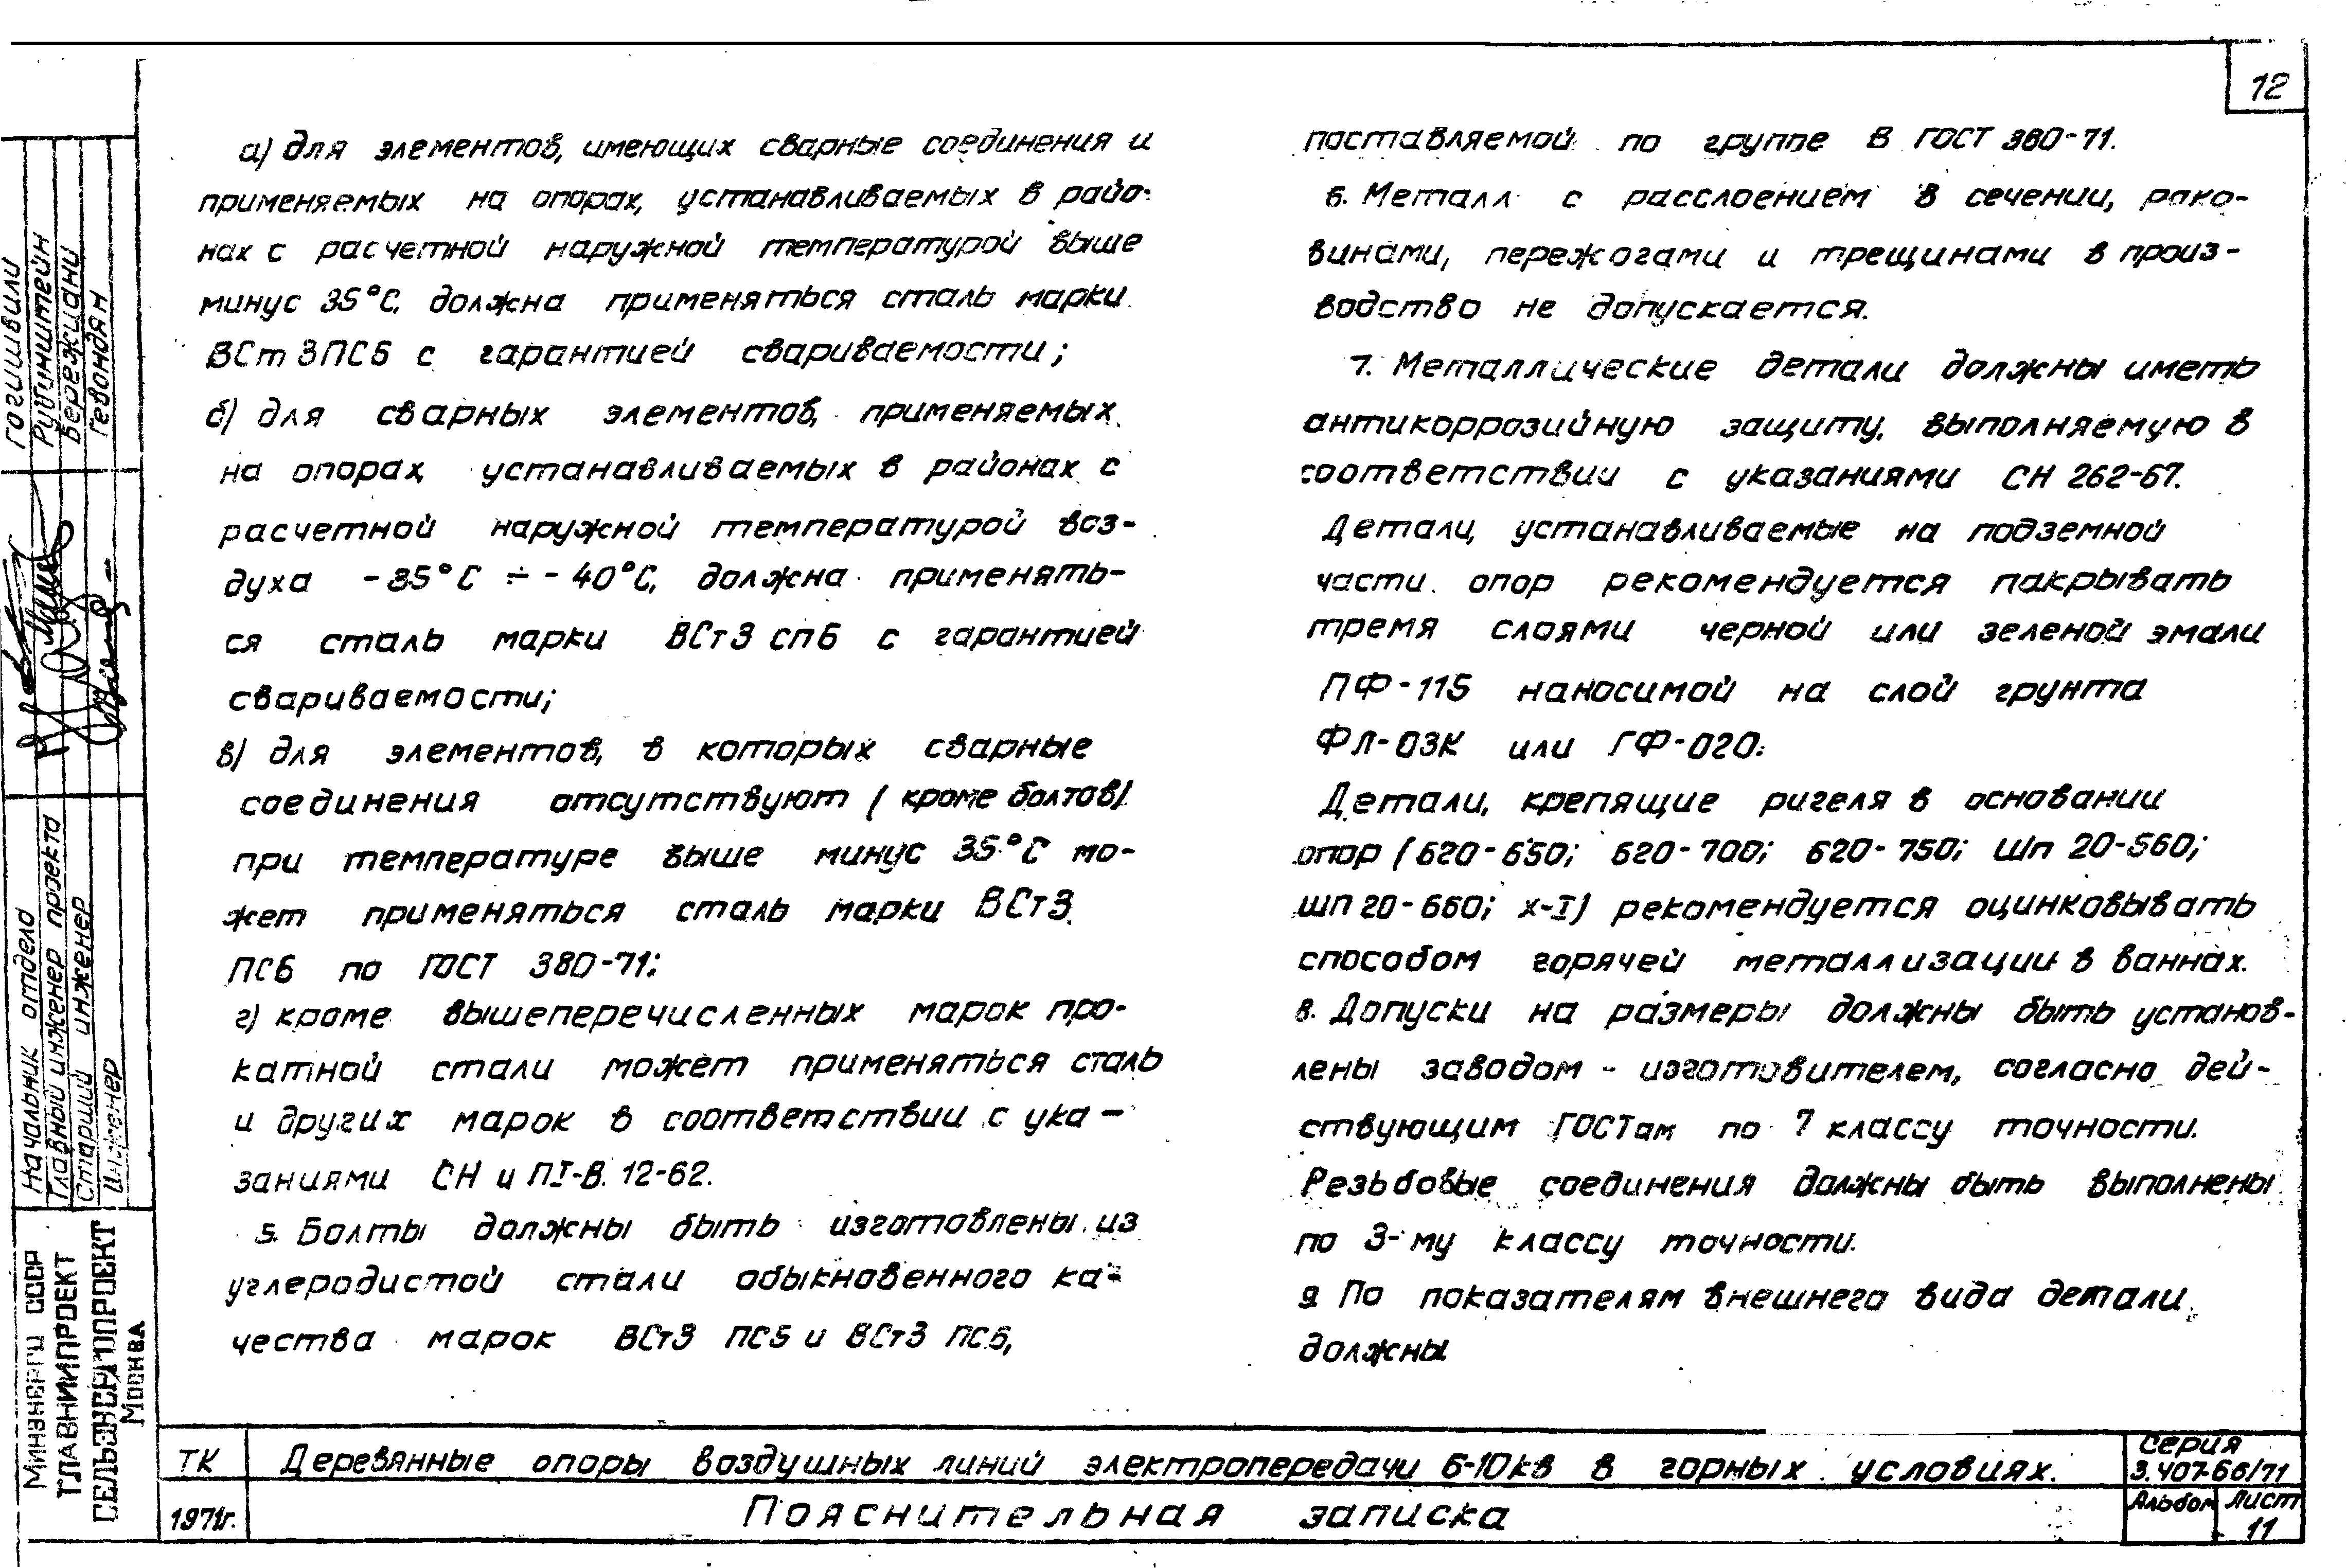 12
а) для элементов, имеющих сварные соединения и
применяемых на опорах, устанавливаемых в райо-
нах с расчетной наружной температурой выше
минус 35°С, должна применяться сталь марки
ВСт3ПС6 с гарантией свариваемости;
б) для сварных элементов, применяемых
на опорах, устанавливаемых в районах с
расчетной наружной температурой воз-
духа -35°С ÷ -40°С, должна применять-
ся сталь марки ВСт3 сп6 с гарантией
свариваемости;
в) для элементов, в которых сварные
соединения отсутствуют (кроме болтов)
при температуре выше минус 35°С мо-
жет применяться сталь марки ВСт3
ПС6 по ГОСТ 380-71;
г) кроме вышеперечисленных марок про-
катной стали может применяться сталь
и других марок в соответствии с ука-
заниями СН и ПI-В. 12-62.
5. Болты должны быть изготовлены из
углеродистой стали обыкновенного ка-
чества марок ВСт3 ПС5 и ВСт3 ПС6,
поставляемой по группе В ГОСТ 380-71.
6. Металл с расслоением в сечении, рако-
винами, пережогами и трещинами в произ-
водство не допускается.
7. Металлические детали должны иметь
антикоррозийную защиту, выполняемую в
соответствии с указаниями СН 262-67.
Детали, устанавливаемые на подземной
части опор рекомендуется покрывать
тремя слоями черной или зеленой эмали
ПФ-115 наносимой на слой грунта
ФЛ-03К или ГФ-020.
Детали, крепящие ригеля в основании
опор (620-650; 620-700; 620-750; Шп 20-560;
шп 20-660; х-I) рекомендуется оцинковывать
способом горячей металлизации в ваннах.
8. Допуски на размеры должны быть установ-
лены заводом - изготовителем, согласно дей-
ствующим ГОСТам по 7 классу точности.
Резьбовые соединения должны быть выполнены
по 3-му классу точности.
9. По показателям внешнего вида детали
должны
Гогишвили
Рубинштейн
Бережиани
Гевондян
Начальник отдела
Главный инженер проекта
Старший инженер
Инженер
Минэнерго СССР
ГЛАВНИИПРОЕКТ
СЕЛЬЭНЕРГОПРОЕКТ
Москва
ТК
1971г.
Деревянные опоры воздушных линий электропередачи 6-10кв в горных условиях.
Пояснительная записка
Серия
3.407-66/71
Альбом
Лист
11